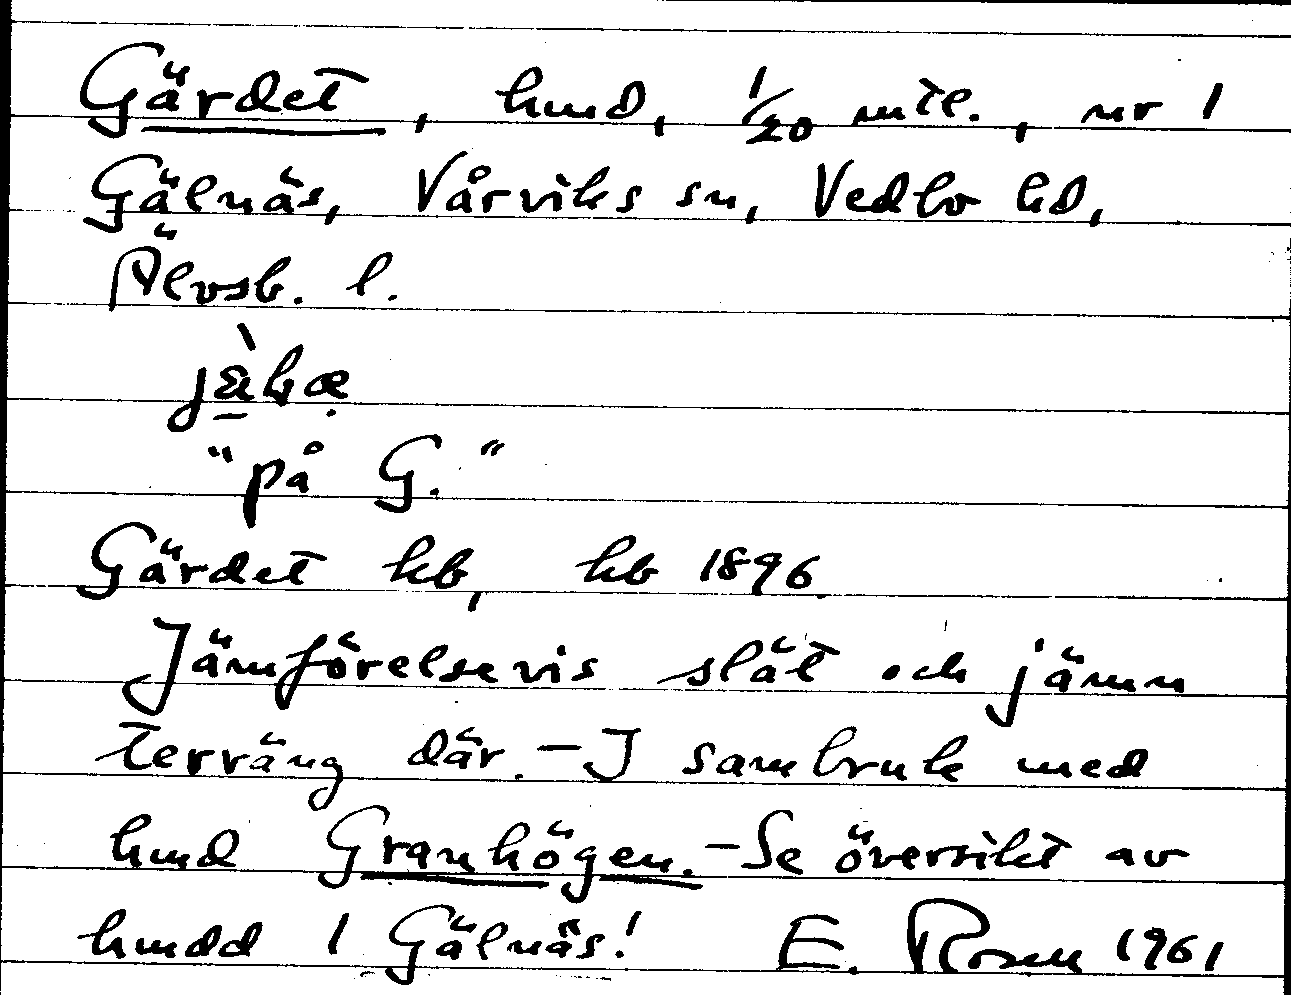 Gärdet, hmd, 1/20 mtl., nr 1
Gälnäs, Vårviks sn, Vedbo hd,
Älvsb. l.
"på G."
Gärdet kb, kb 1896.
Jämförelsevis slät och jämn
terräng där. – I sambruk med
hmd Granhögen. – Se översikt av
hmdd 1 Gälnäs! E. Rosen 1961